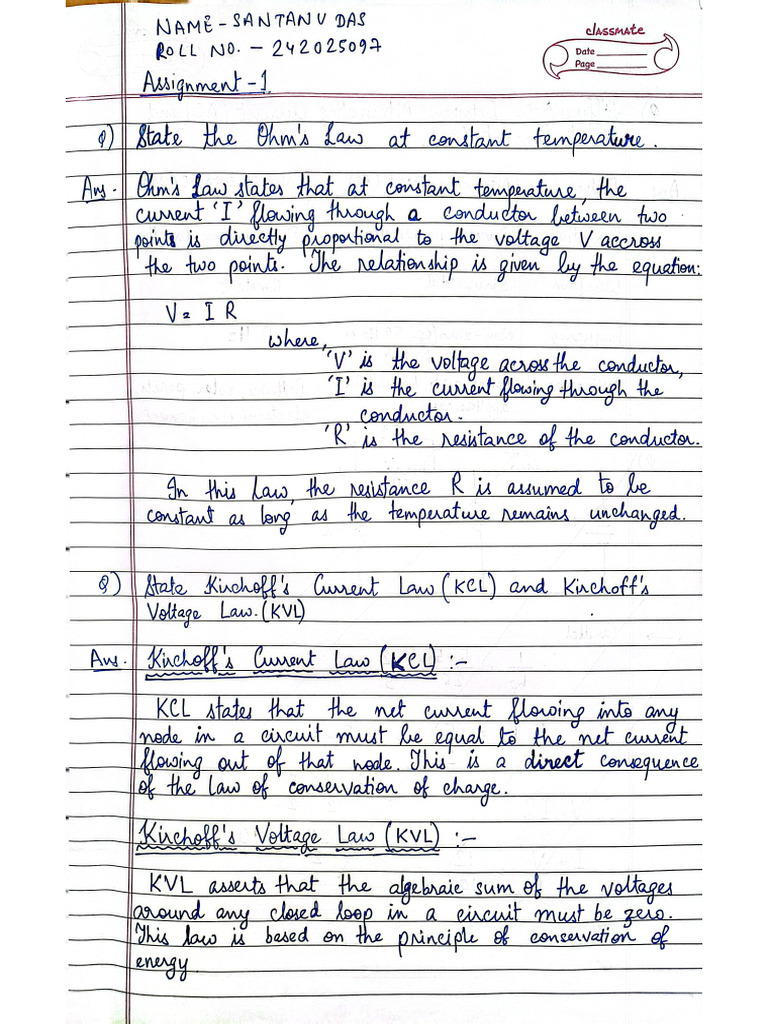 NAME - SANTANU DAS
ROLL NO. - 242025097
Assignment - 1
classmate
Date
Page
Q) State the Ohm's Law at constant temperature.
Ans. Ohm's Law states that at constant temperature, the
current 'I' flowing through a conductor between two
points is directly proportional to the voltage V accross
the two points. The relationship is given by the equation:
V = I R
where,
'V' is the voltage across the conductor,
'I' is the current flowing through the
conductor.
'R' is the resistance of the conductor.
In this Law, the resistance R is assumed to be
constant as long as the temperature remains unchanged.
Q) State Kirchoff's Current Law (KCL) and Kirchoff's
Voltage Law. (KVL)
Ans. Kirchoff's Current Law (KCL) :-
KCL states that the net current flowing into any
node in a circuit must be equal to the net current
flowing out of that node. This is a direct consequence
of the law of conservation of charge.
Kirchoff's Voltage Law (KVL) :-
KVL asserts that the algebraic sum of the voltages
around any closed loop in a circuit must be zero.
This law is based on the principle of conservation of
energy.